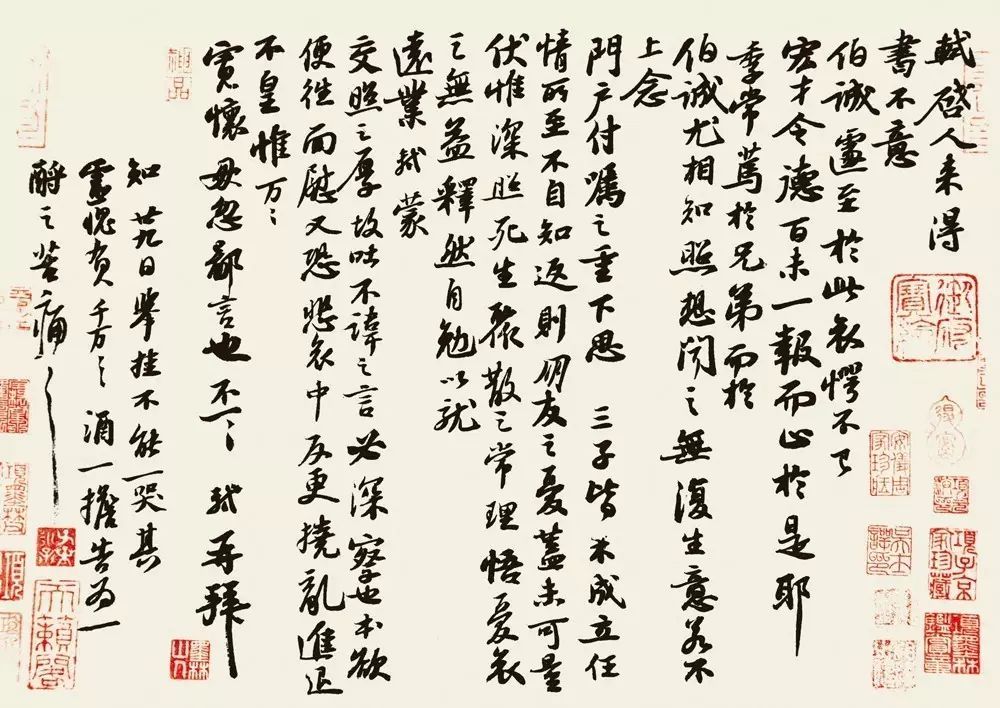 軾啓人来得
書不意
伯誠遽至於此哀愕不已
宏才令德百未一報而止於是耶
季常篤於兄弟而於
伯誠尤相知照想聞之無復生意若不
上念
門户付囑之重下思三子皆未成立任
情所至不自知返則朋友之憂蓋未可量
伏惟深照死生聚散之常理悟憂哀
之無益釋然自勉以就
遠業軾蒙
交照之厚故吐不諱之言必深察也本欲
便往面慰又恐悲哀中反更撓亂進退
不皇惟万万
寛懷毋忽鄙言也不一一軾再拜
知廿九日舉挂不能一哭其
靈愧負千万千万酒一擔告為一
酹之苦痛苦痛
御府寶繪
項子京家珍藏
項墨林鑑賞章
墨林山人
天籟閣
神品